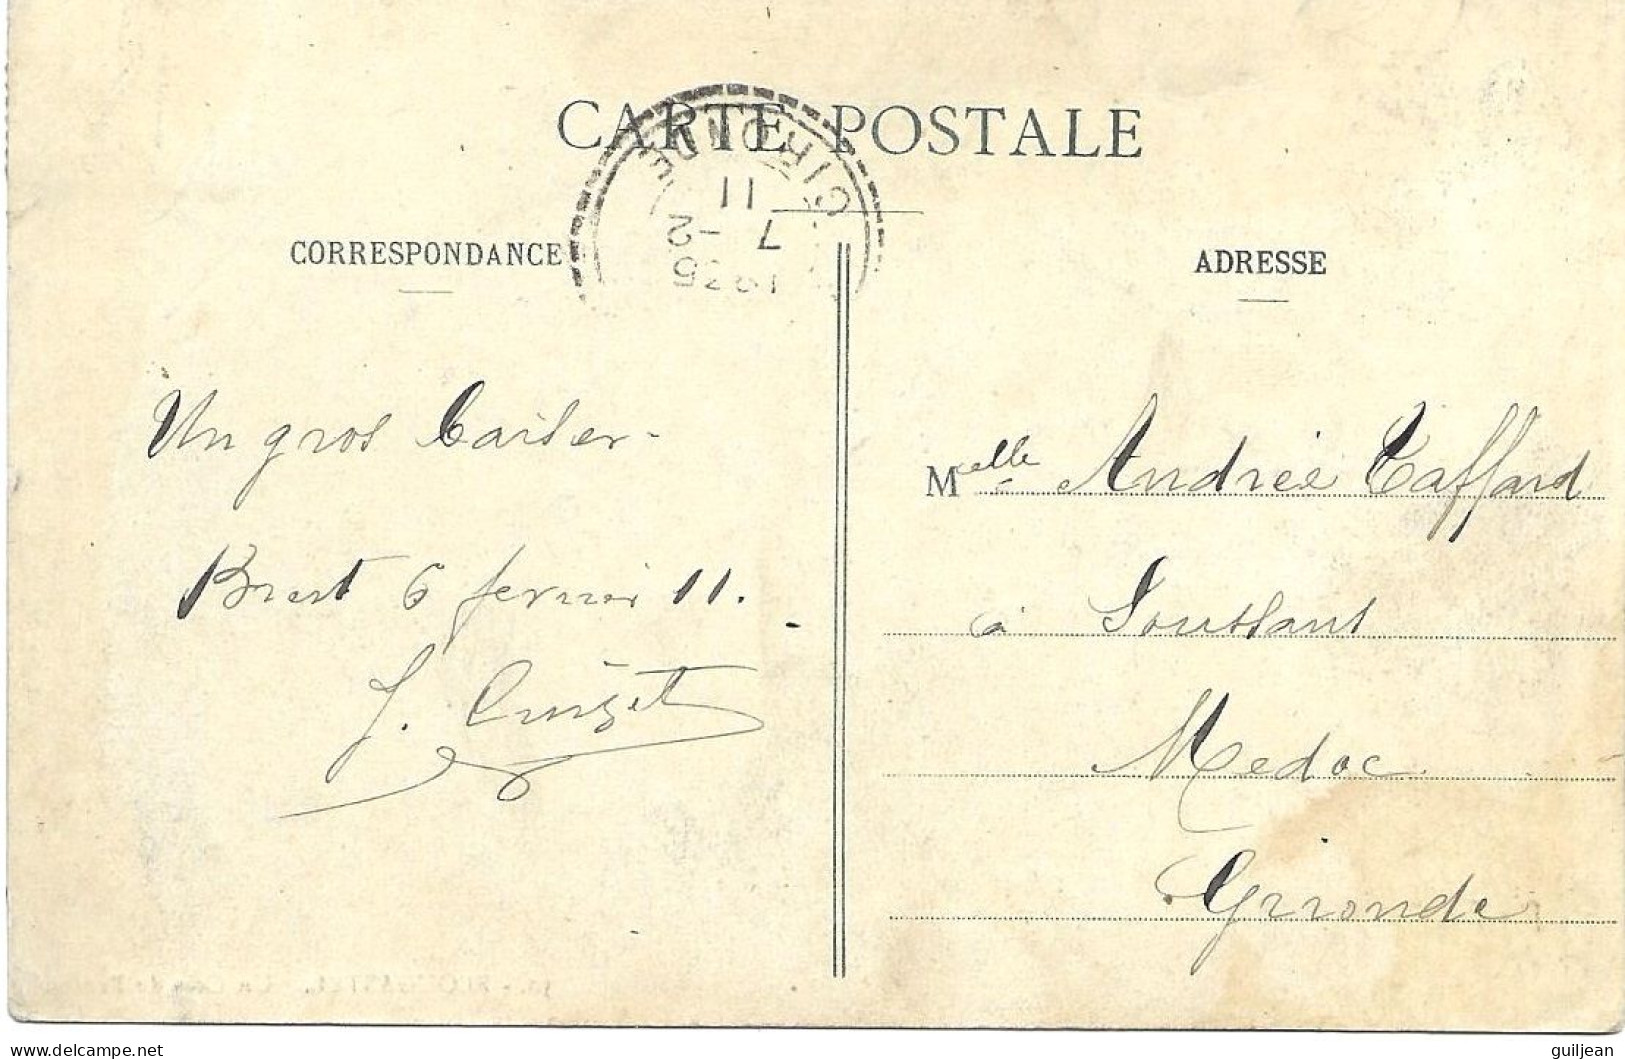 CARTE POSTALE
GIRONDE
11
7 - 2
CORRESPONDANCE
ADRESSE
Un gros baiser -
Brest 6 fevrier 11.
Melle Andrée Taffard
à Soussans
Medoc
Gironde
www.delcampe.net
guiljean